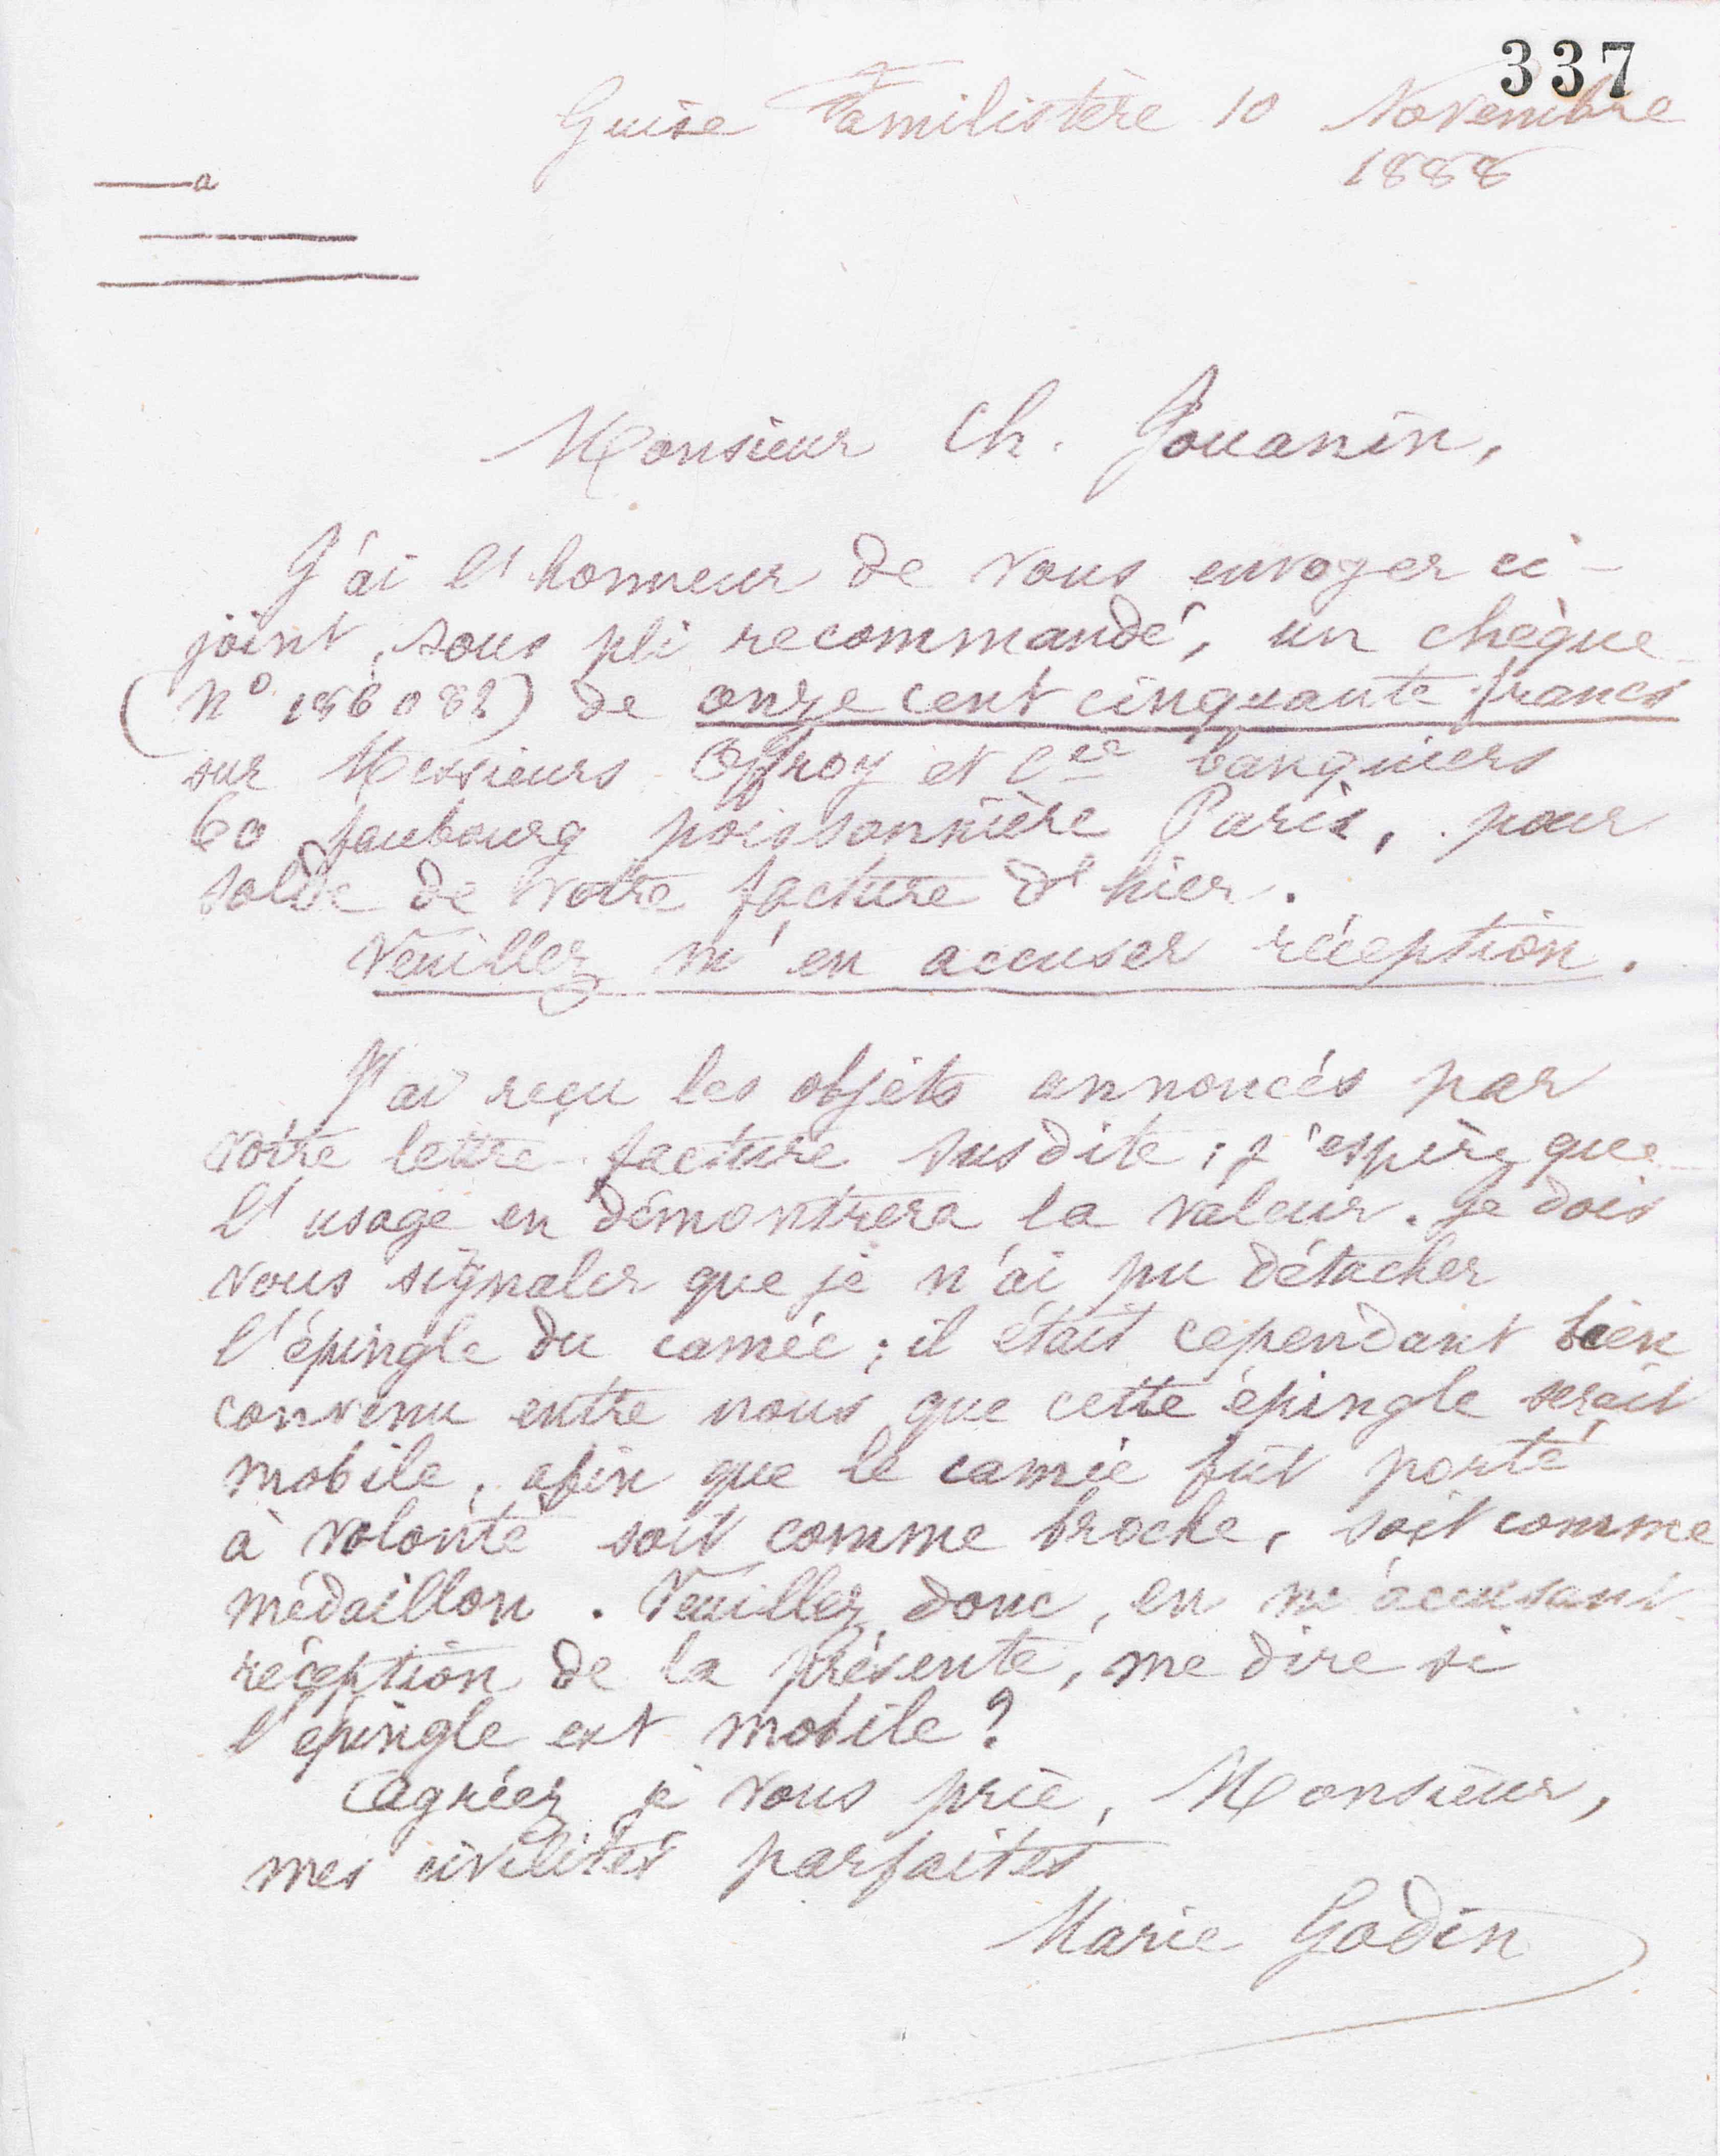 337
Guise Familistère 10 Novembre
1888
a
Monsieur Ch. Jouanin,
J'ai l'honneur de vous envoyer ci-
joint, sous pli recommandé, un chèque
(No 156082) de onze cent cinquante francs
sur Messieurs Offroy et Cie banquiers
60 faubourg poissonnière Paris, pour
solde de votre facture d'hier.
Veuillez m'en accuser réception.
J'ai reçu les objets annoncés par
votre lettre facture susdite ; j'espère que
l'usage en démontrera la valeur. Je dois
vous signaler que je n'ai pu détacher
l'épingle du camée ; il était cependant bien
convenu entre nous que cette épingle serait
mobile, afin que le camée fût porté
à volonté soit comme broche, soit comme
médaillon. Veuillez donc, en m'accusant
réception de la présente, me dire si
l'épingle est mobile ?
Agréez je vous prie, Monsieur,
mes civilités parfaites
Marie Godin